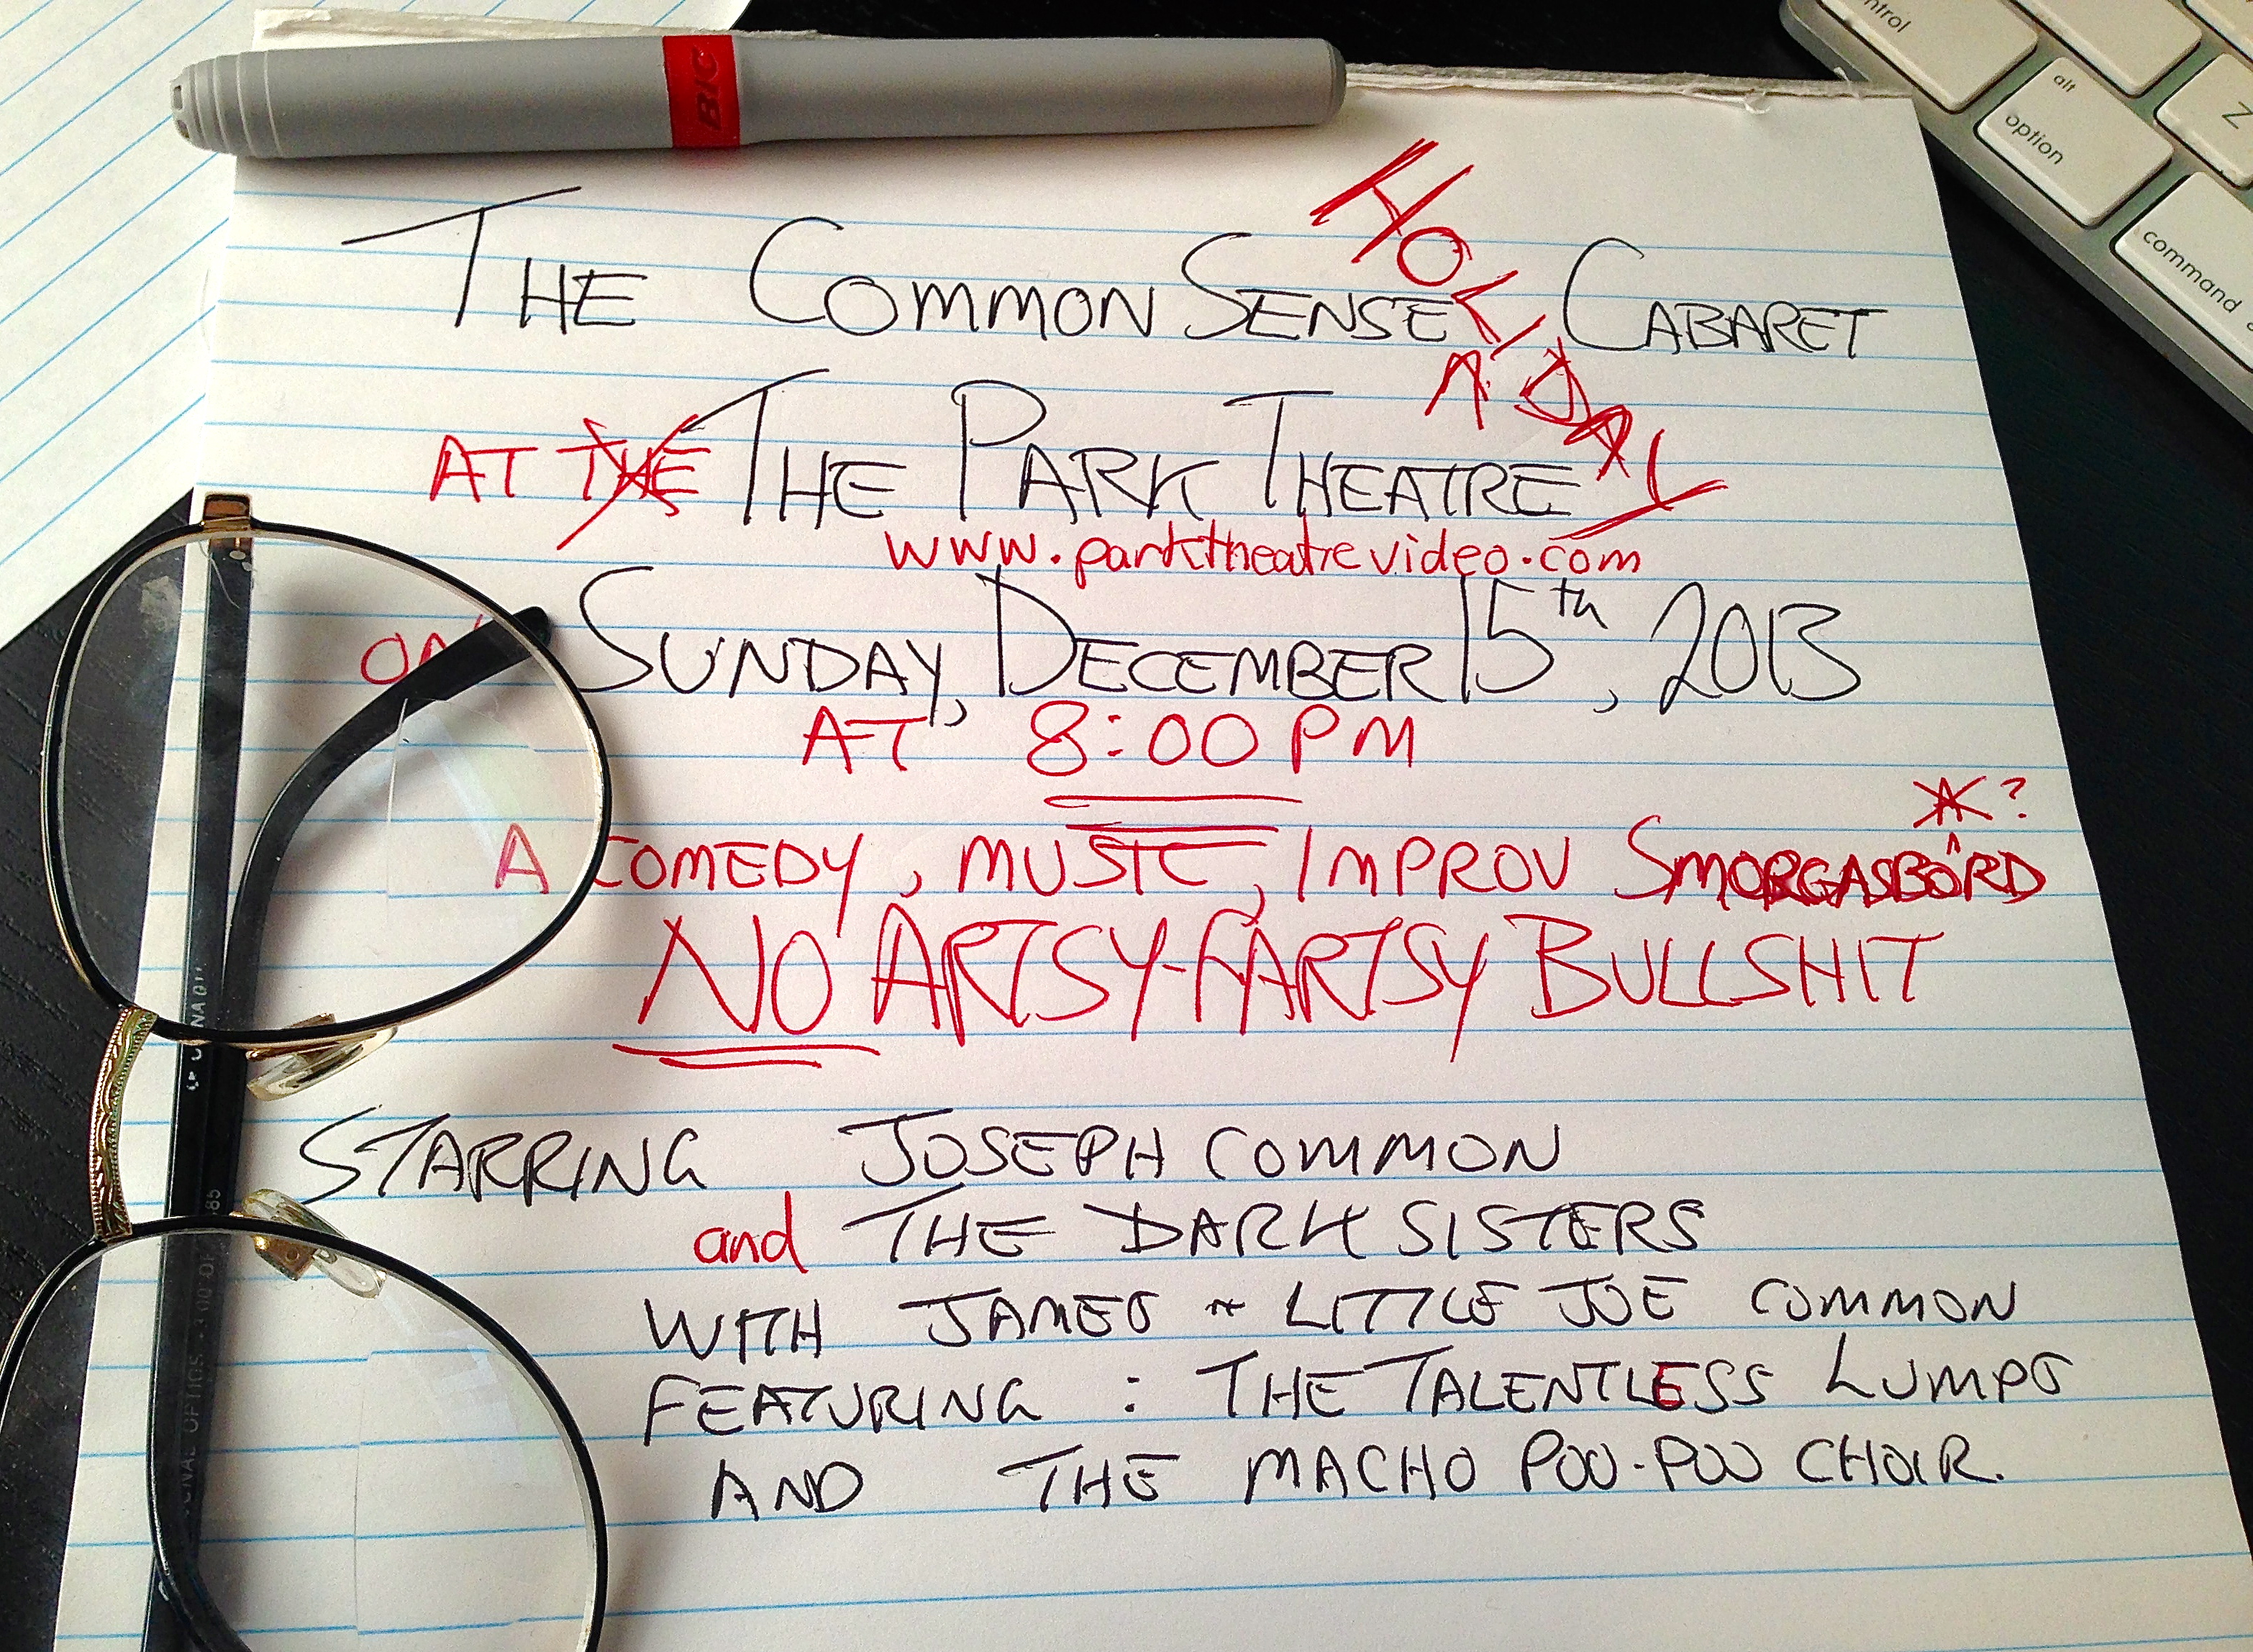 BIC
ntrol
alt
option
Z
command
HOLIDAY
THE COMMON SENSE CABARET
AT THE THE PARK THEATRE
www.parktheatrevideo.com
ON SUNDAY, DECEMBER 15th, 2013
AT 8:00 PM
*?
A COMEDY, MUSIC, IMPROV SMORGASBÔRD
NO ARTSY-FARTSY BULLSHIT
STARRING JOSEPH COMMON
and THE DARK SISTERS
WITH JAMES & LITTLE JOE COMMON
FEATURING: THE TALENTLESS LUMPS
AND THE MACHO POO-POO CHOIR.